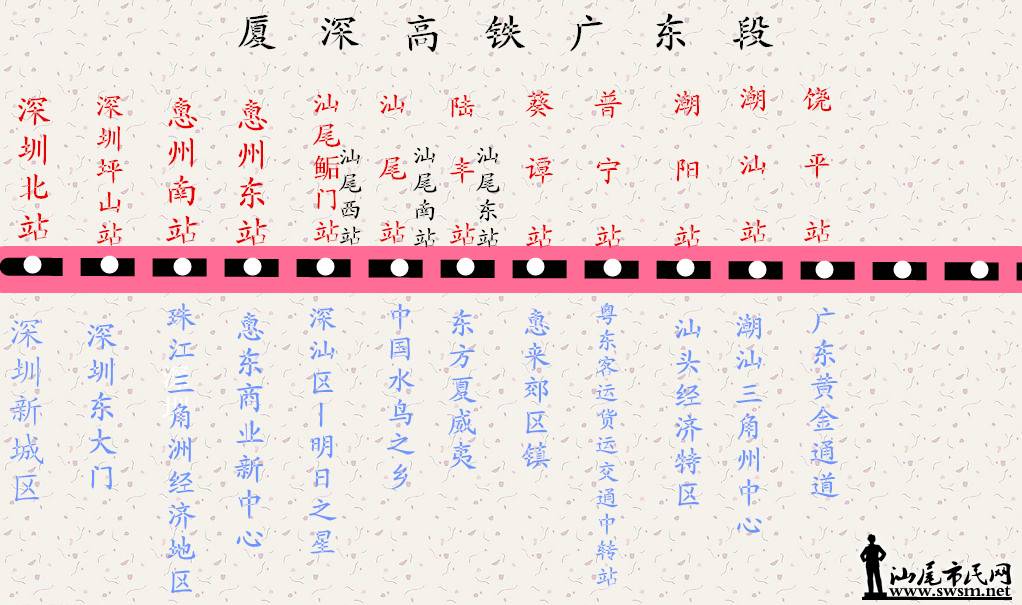 厦深高铁广东段
深圳北站
深圳坪山站
惠州南站
惠州东站
汕尾鲘门站
汕尾西站
汕尾站
汕尾南站
陆丰站
汕尾东站
葵谭站
普宁站
潮阳站
潮汕站
饶平站
深圳新城区
深圳东大门
珠江三角洲经济地区
惠东商业新中心
深汕区—明日之星
中国水鸟之乡
东方夏威夷
惠来郊区镇
粤东客运货运交通中转站
汕头经济特区
潮汕三角州中心
广东黄金通道
汕尾市民网
www.swsm.net